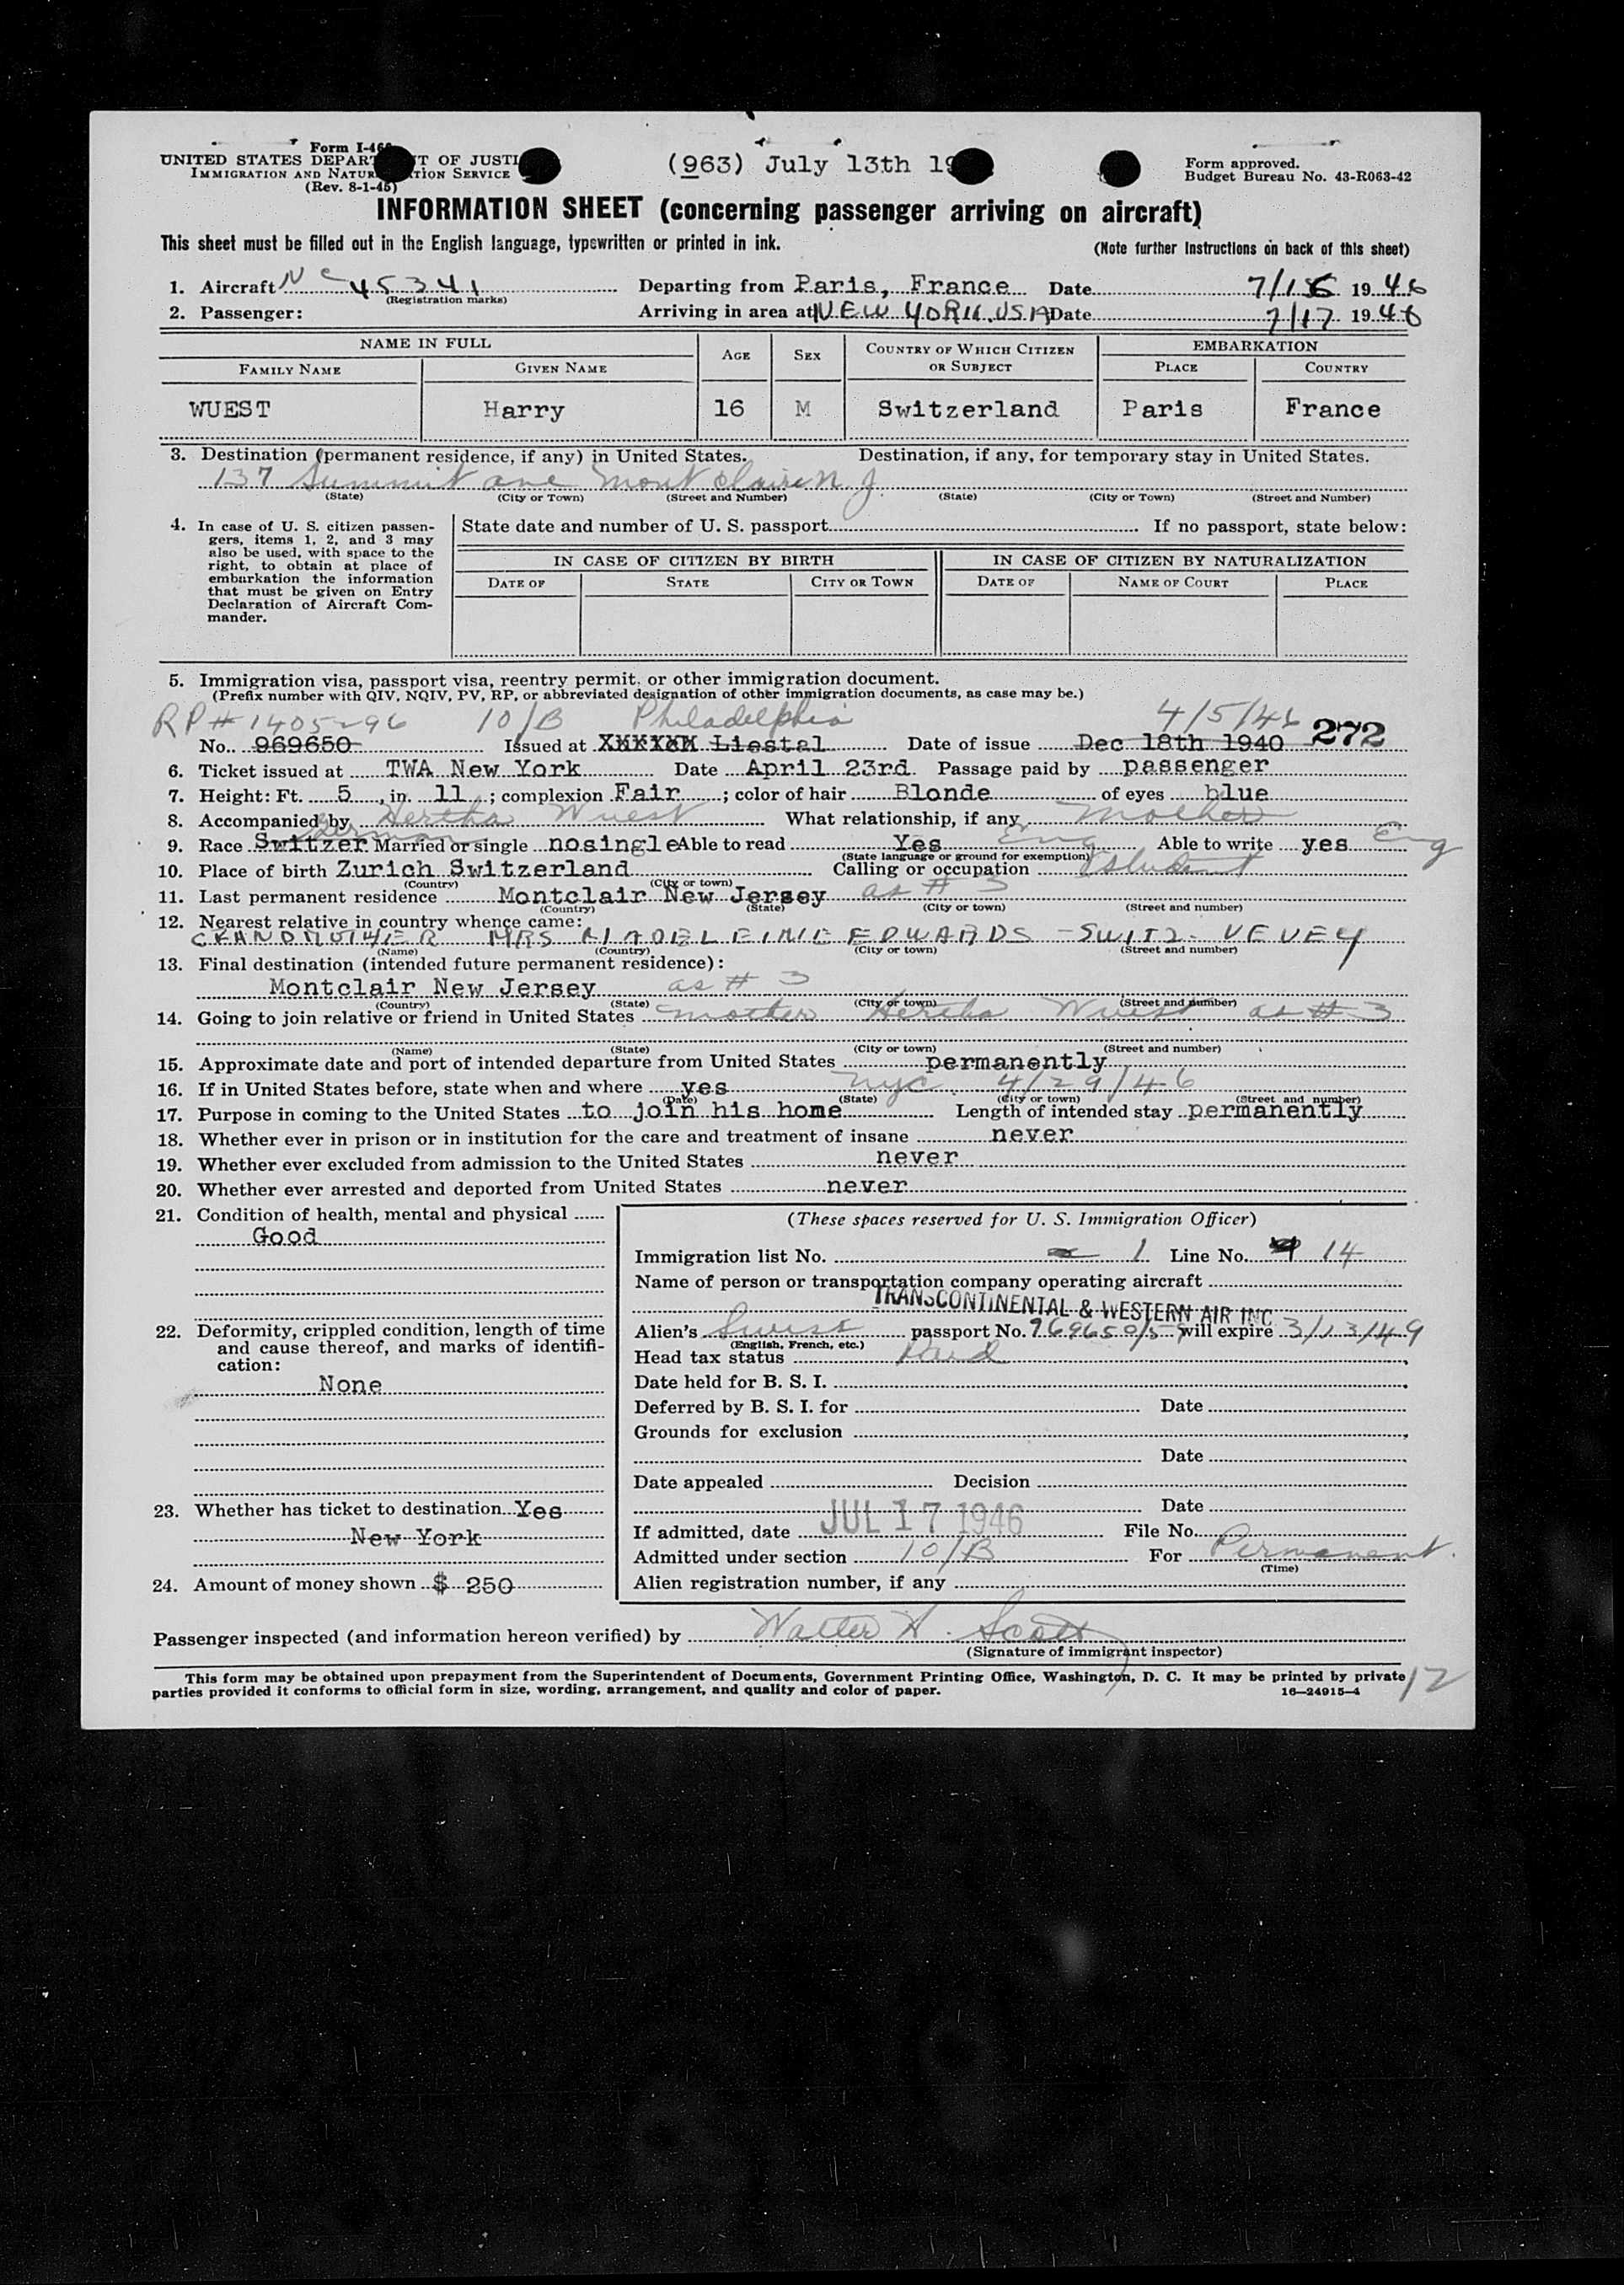 Form I-46
UNITED STATES DEPAR T OF JUSTI
IMMIGRATION AND NATUR TION SERVICE
(Rev. 8-1-45)
(963) July 13th 19
Form approved.
Budget Bureau No. 43-R063-42
INFORMATION SHEET (concerning passenger arriving on aircraft)
This sheet must be filled out in the English language, typewritten or printed in ink.
(Note further instructions on back of this sheet)
1. Aircraft NC 45341 Departing from Paris, France Date 7/16 1946
(Registration marks)
2. Passenger: Arriving in area at NEW YORK. USA Date 7/17 1946
NAME IN FULL AGE SEX COUNTRY OF WHICH CITIZEN OR SUBJECT EMBARKATION
FAMILY NAME GIVEN NAME PLACE COUNTRY
WUEST Harry 16 M Switzerland Paris France
3. Destination (permanent residence, if any) in United States. Destination, if any, for temporary stay in United States.
137 Summit ave Montclair N.J.
(State) (City or Town) (Street and Number) (State) (City or Town) (Street and Number)
4. In case of U. S. citizen passen-
gers, items 1, 2, and 3 may
also be used, with space to the
right, to obtain at place of
embarkation the information
that must be given on Entry
Declaration of Aircraft Com-
mander.
State date and number of U. S. passport If no passport, state below:
IN CASE OF CITIZEN BY BIRTH IN CASE OF CITIZEN BY NATURALIZATION
DATE OF STATE CITY OR TOWN DATE OF NAME OF COURT PLACE
5. Immigration visa, passport visa, reentry permit, or other immigration document.
(Prefix number with QIV, NQIV, PV, RP, or abbreviated designation of other immigration documents, as case may be.)
RP# 1405296 10/B Philadelphia 4/5/46 272
No. 969650 Issued at XXXXXX Liestal Date of issue Dec 18th 1940
6. Ticket issued at TWA New York Date April 23rd Passage paid by passenger
7. Height: Ft. 5, in. 11; complexion Fair; color of hair Blonde of eyes blue
8. Accompanied by Hertha Wuest What relationship, if any mother
German
9. Race Switzer Married or single nosingle Able to read Yes Eng Able to write yes Eng
(State language or ground for exemption)
10. Place of birth Zurich Switzerland Calling or occupation Student
(Country) (City or town)
11. Last permanent residence Montclair New Jersey as # 3
(Country) (State) (City or town) (Street and number)
12. Nearest relative in country whence came:
GRANDMOTHER MRS MADELEINE EDWARDS - SWITZ. VEVEY
(Name) (Country) (City or town) (Street and number)
13. Final destination (intended future permanent residence):
Montclair New Jersey as # 3
(Country) (State) (City or town) (Street and number)
14. Going to join relative or friend in United States mother Hertha Wuest as # 3
(Name) (State) (City or town) (Street and number)
15. Approximate date and port of intended departure from United States permanently
16. If in United States before, state when and where yes nyc 4/29/46
(Date) (State) (City or town) (Street and number)
17. Purpose in coming to the United States to join his home Length of intended stay permanently
18. Whether ever in prison or in institution for the care and treatment of insane never
19. Whether ever excluded from admission to the United States never
20. Whether ever arrested and deported from United States never
21. Condition of health, mental and physical
Good
22. Deformity, crippled condition, length of time
and cause thereof, and marks of identifi-
cation:
None
23. Whether has ticket to destination Yes
New York
24. Amount of money shown $ 250
(These spaces reserved for U. S. Immigration Officer)
Immigration list No. 1 Line No. 14
Name of person or transportation company operating aircraft
TRANSCONTINENTAL & WESTERN AIR INC
Alien's Swiss passport No. 969650/59 will expire 3/13/49
(English, French, etc.)
Head tax status Paid
Date held for B. S. I.
Deferred by B. S. I. for Date
Grounds for exclusion
Date
Date appealed Decision
Date
If admitted, date JUL 17 1946 File No.
Admitted under section 10/B For Permanent
(Time)
Alien registration number, if any
Passenger inspected (and information hereon verified) by Walter H. Scott
(Signature of immigrant inspector)
This form may be obtained upon prepayment from the Superintendent of Documents, Government Printing Office, Washington, D. C. It may be printed by private
parties provided it conforms to official form in size, wording, arrangement, and quality and color of paper. 16—24915-4
12